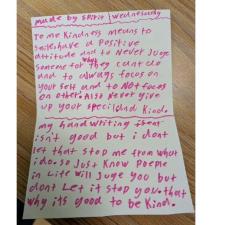 made by spirit | wednesday
to me kindness means to
smile, have a Positive
attitude and to Never Juge
someone for what they cant do
and to always focus on
your self and to Not focus
on others. Also Never give
up your special and Kind.
my hand writing
isn't good but i dont
let that stop me from what
i do. so Just Know People
in Life will Juge you but
dont Let it stop you. that
why its good to be Kind.